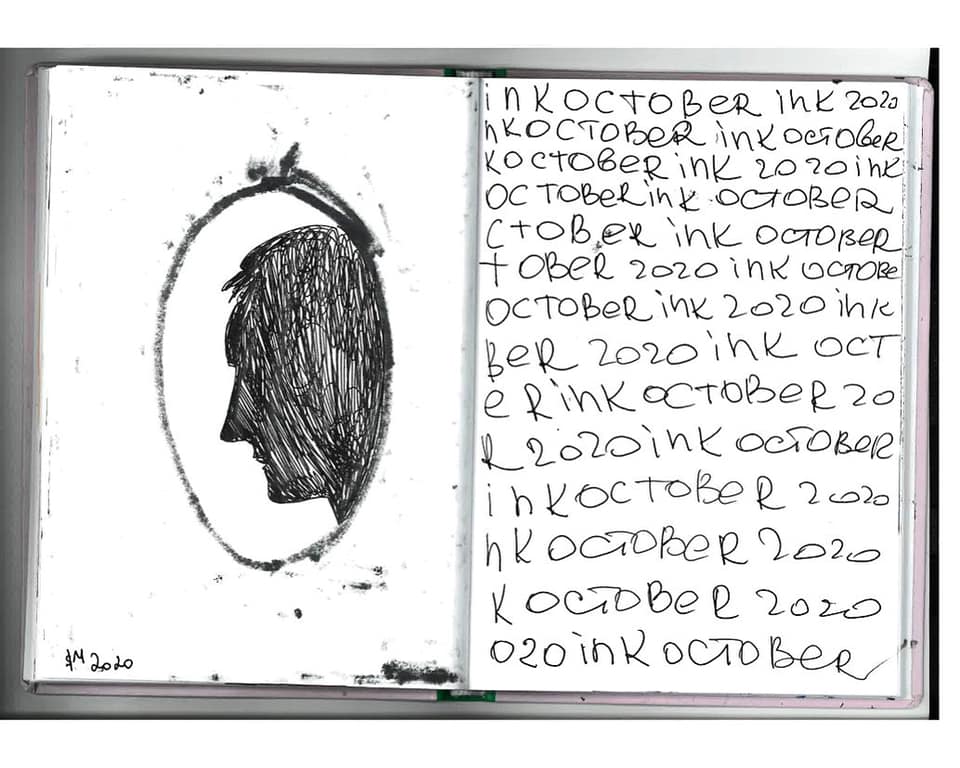 inK OCTOBER inK 2020
nK OCTOBER inK OCTOBER
K OCTOBER inK 2020 inK
OCTOBER inK OCTOBER
CTOBER inK OCTOBER
TOBER 2020 inK OCTOBE
OCTOBER inK 2020 inK
BER 2020 inK OCT
ER inK OCTOBER 20
R 2020 inK OCTOBER
inK OCTOBER 2020
nK OCTOBER 2020
K OCTOBER 2020
020 inK OCTOBER
2020